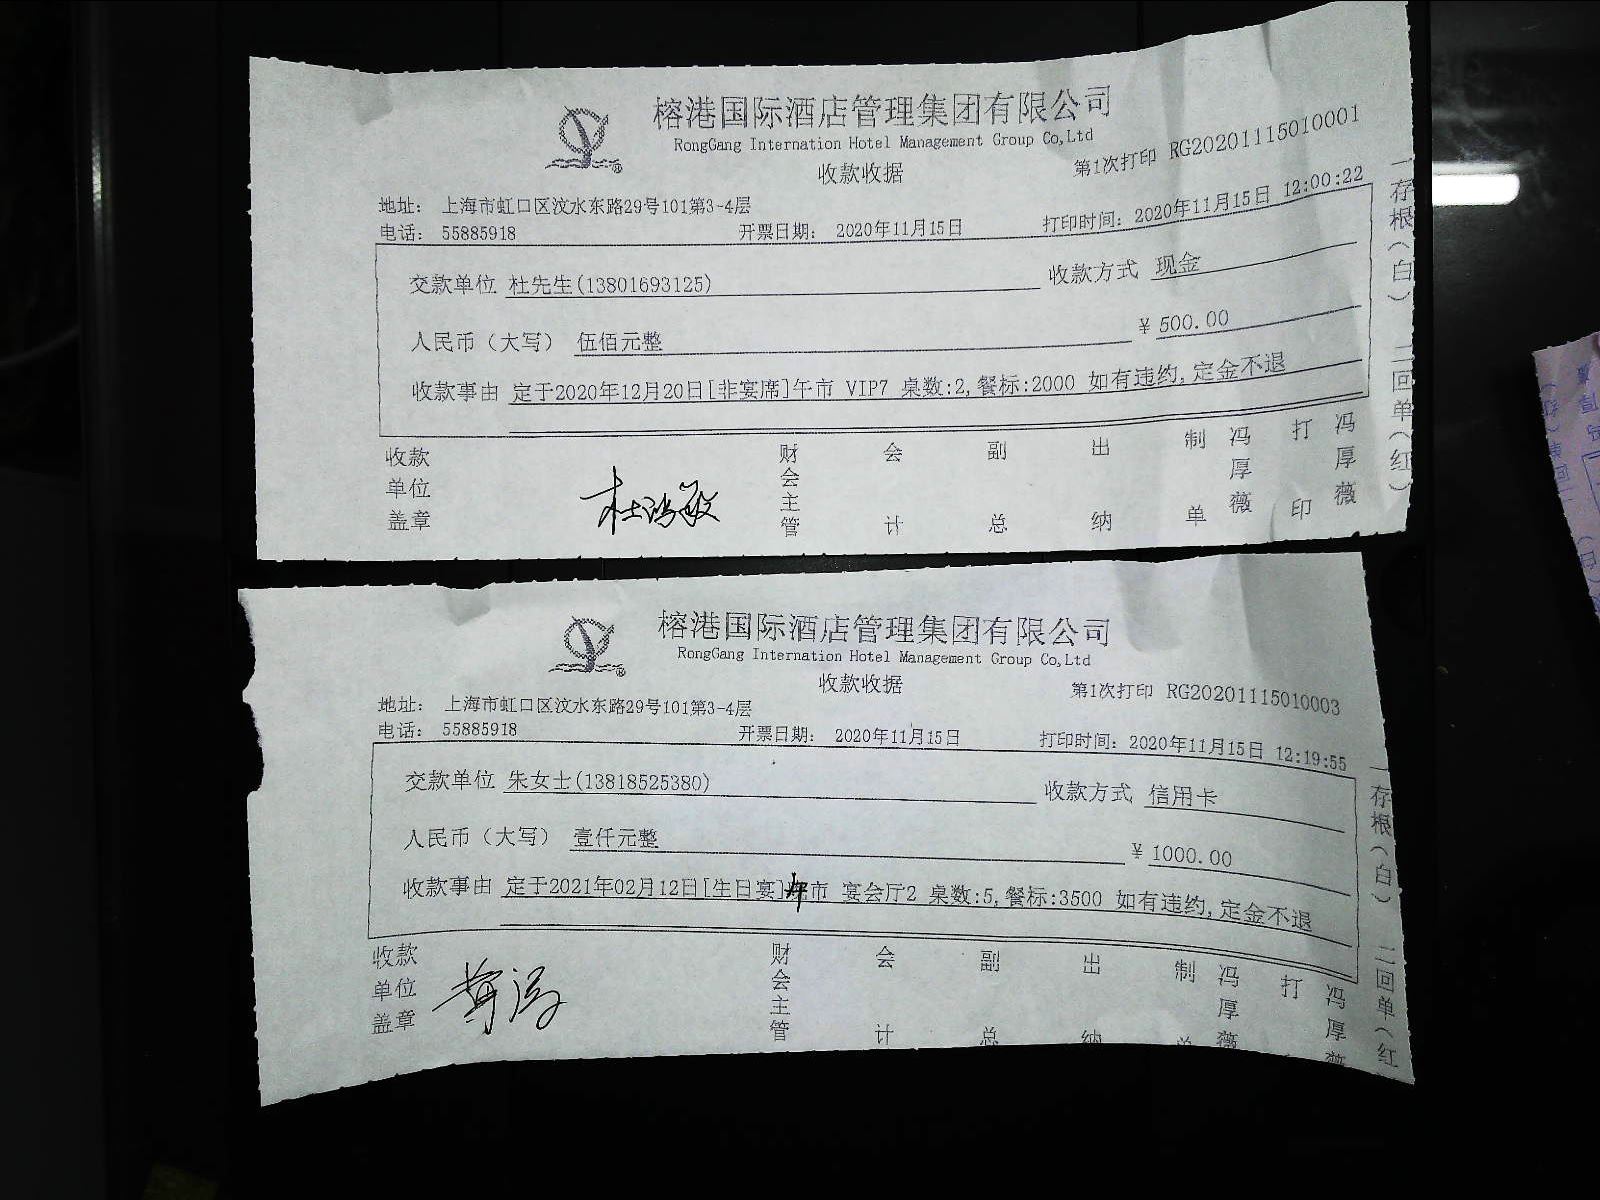 榕港国际酒店管理集团有限公司
RongGang Internation Hotel Management Group Co,Ltd
收款收据
第1次打印 RG20201115010001
地址: 上海市虹口区汶水东路29号101第3-4层
电话: 55885918 开票日期: 2020年11月15日 打印时间: 2020年11月15日 12:00:22
交款单位 杜先生(13801693125) 收款方式 现金
人民币（大写） 伍佰元整 ¥ 500.00
收款事由 定于2020年12月20日[非宴席]午市 VIP7 桌数:2,餐标:2000 如有违约,定金不退
收款单位盖章 财会主管 会计 副总 出纳 制单 冯厚薇 打印 冯厚薇
一存根(白) 二回单(红)
榕港国际酒店管理集团有限公司
RongGang Internation Hotel Management Group Co,Ltd
收款收据
第1次打印 RG20201115010003
地址: 上海市虹口区汶水东路29号101第3-4层
电话: 55885918 开票日期: 2020年11月15日 打印时间: 2020年11月15日 12:19:55
交款单位 朱女士(13818525380) 收款方式 信用卡
人民币（大写） 壹仟元整 ¥ 1000.00
收款事由 定于2021年02月12日[生日宴]午市 宴会厅2 桌数:5,餐标:3500 如有违约,定金不退
收款单位盖章 财会主管 会计 副总 出纳 制单 冯厚薇 打 冯厚薇
一存根(白) 二回单(红